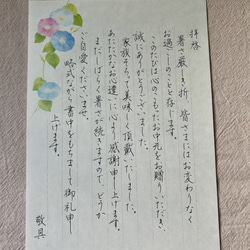 拝啓
暑さ厳しき折、皆さまにはお変わりなく
お過ごしのことと存じます。
このたびは心のこもったお中元をお贈りいただき、
誠にありがとうございました。
家族そろって美味しく頂戴いたしました。
あたたかなお心遣いに心より感謝申し上げます。
まだしばらく暑さが続きますので、どうか
ご自愛くださいませ。
略式ながら書中をもちまして御礼申
し上げます。
敬具